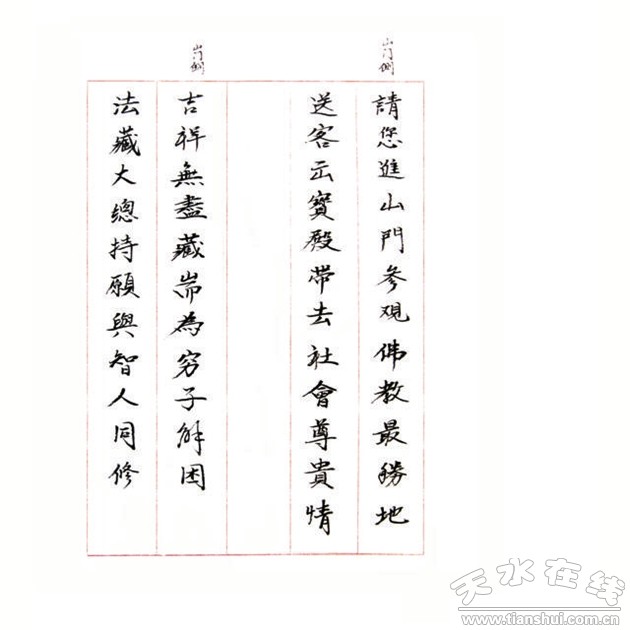 山门
請您進山門参观佛教最勝地
送客出寶殿帶去社會尊貴情
山门
吉祥無盡藏耑為穷子解困
法藏大總持願與智人同修
天水在线
www.tianshui.com.cn